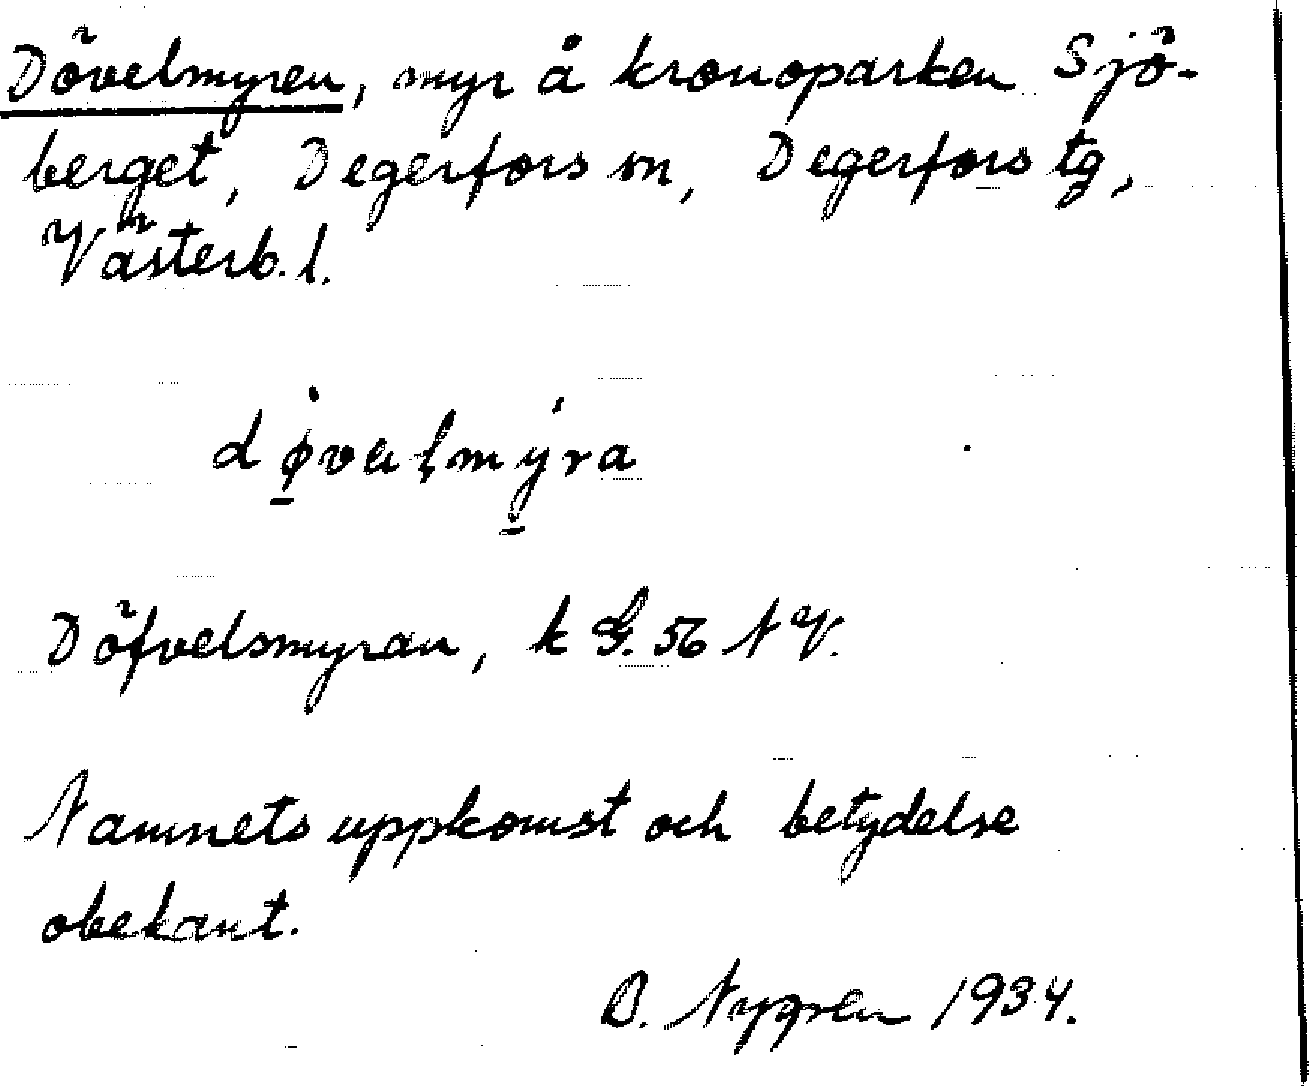 Dövelmyren, myr å kronoparken Sjö-
berget, Degerfors sn, Degerfors tg,
Västerb. l.
døvalmyra
Döfvelsmyran, k G. 56 NV.
Namnets uppkomst och betydelse
obekant.
O. Nygren 1934.